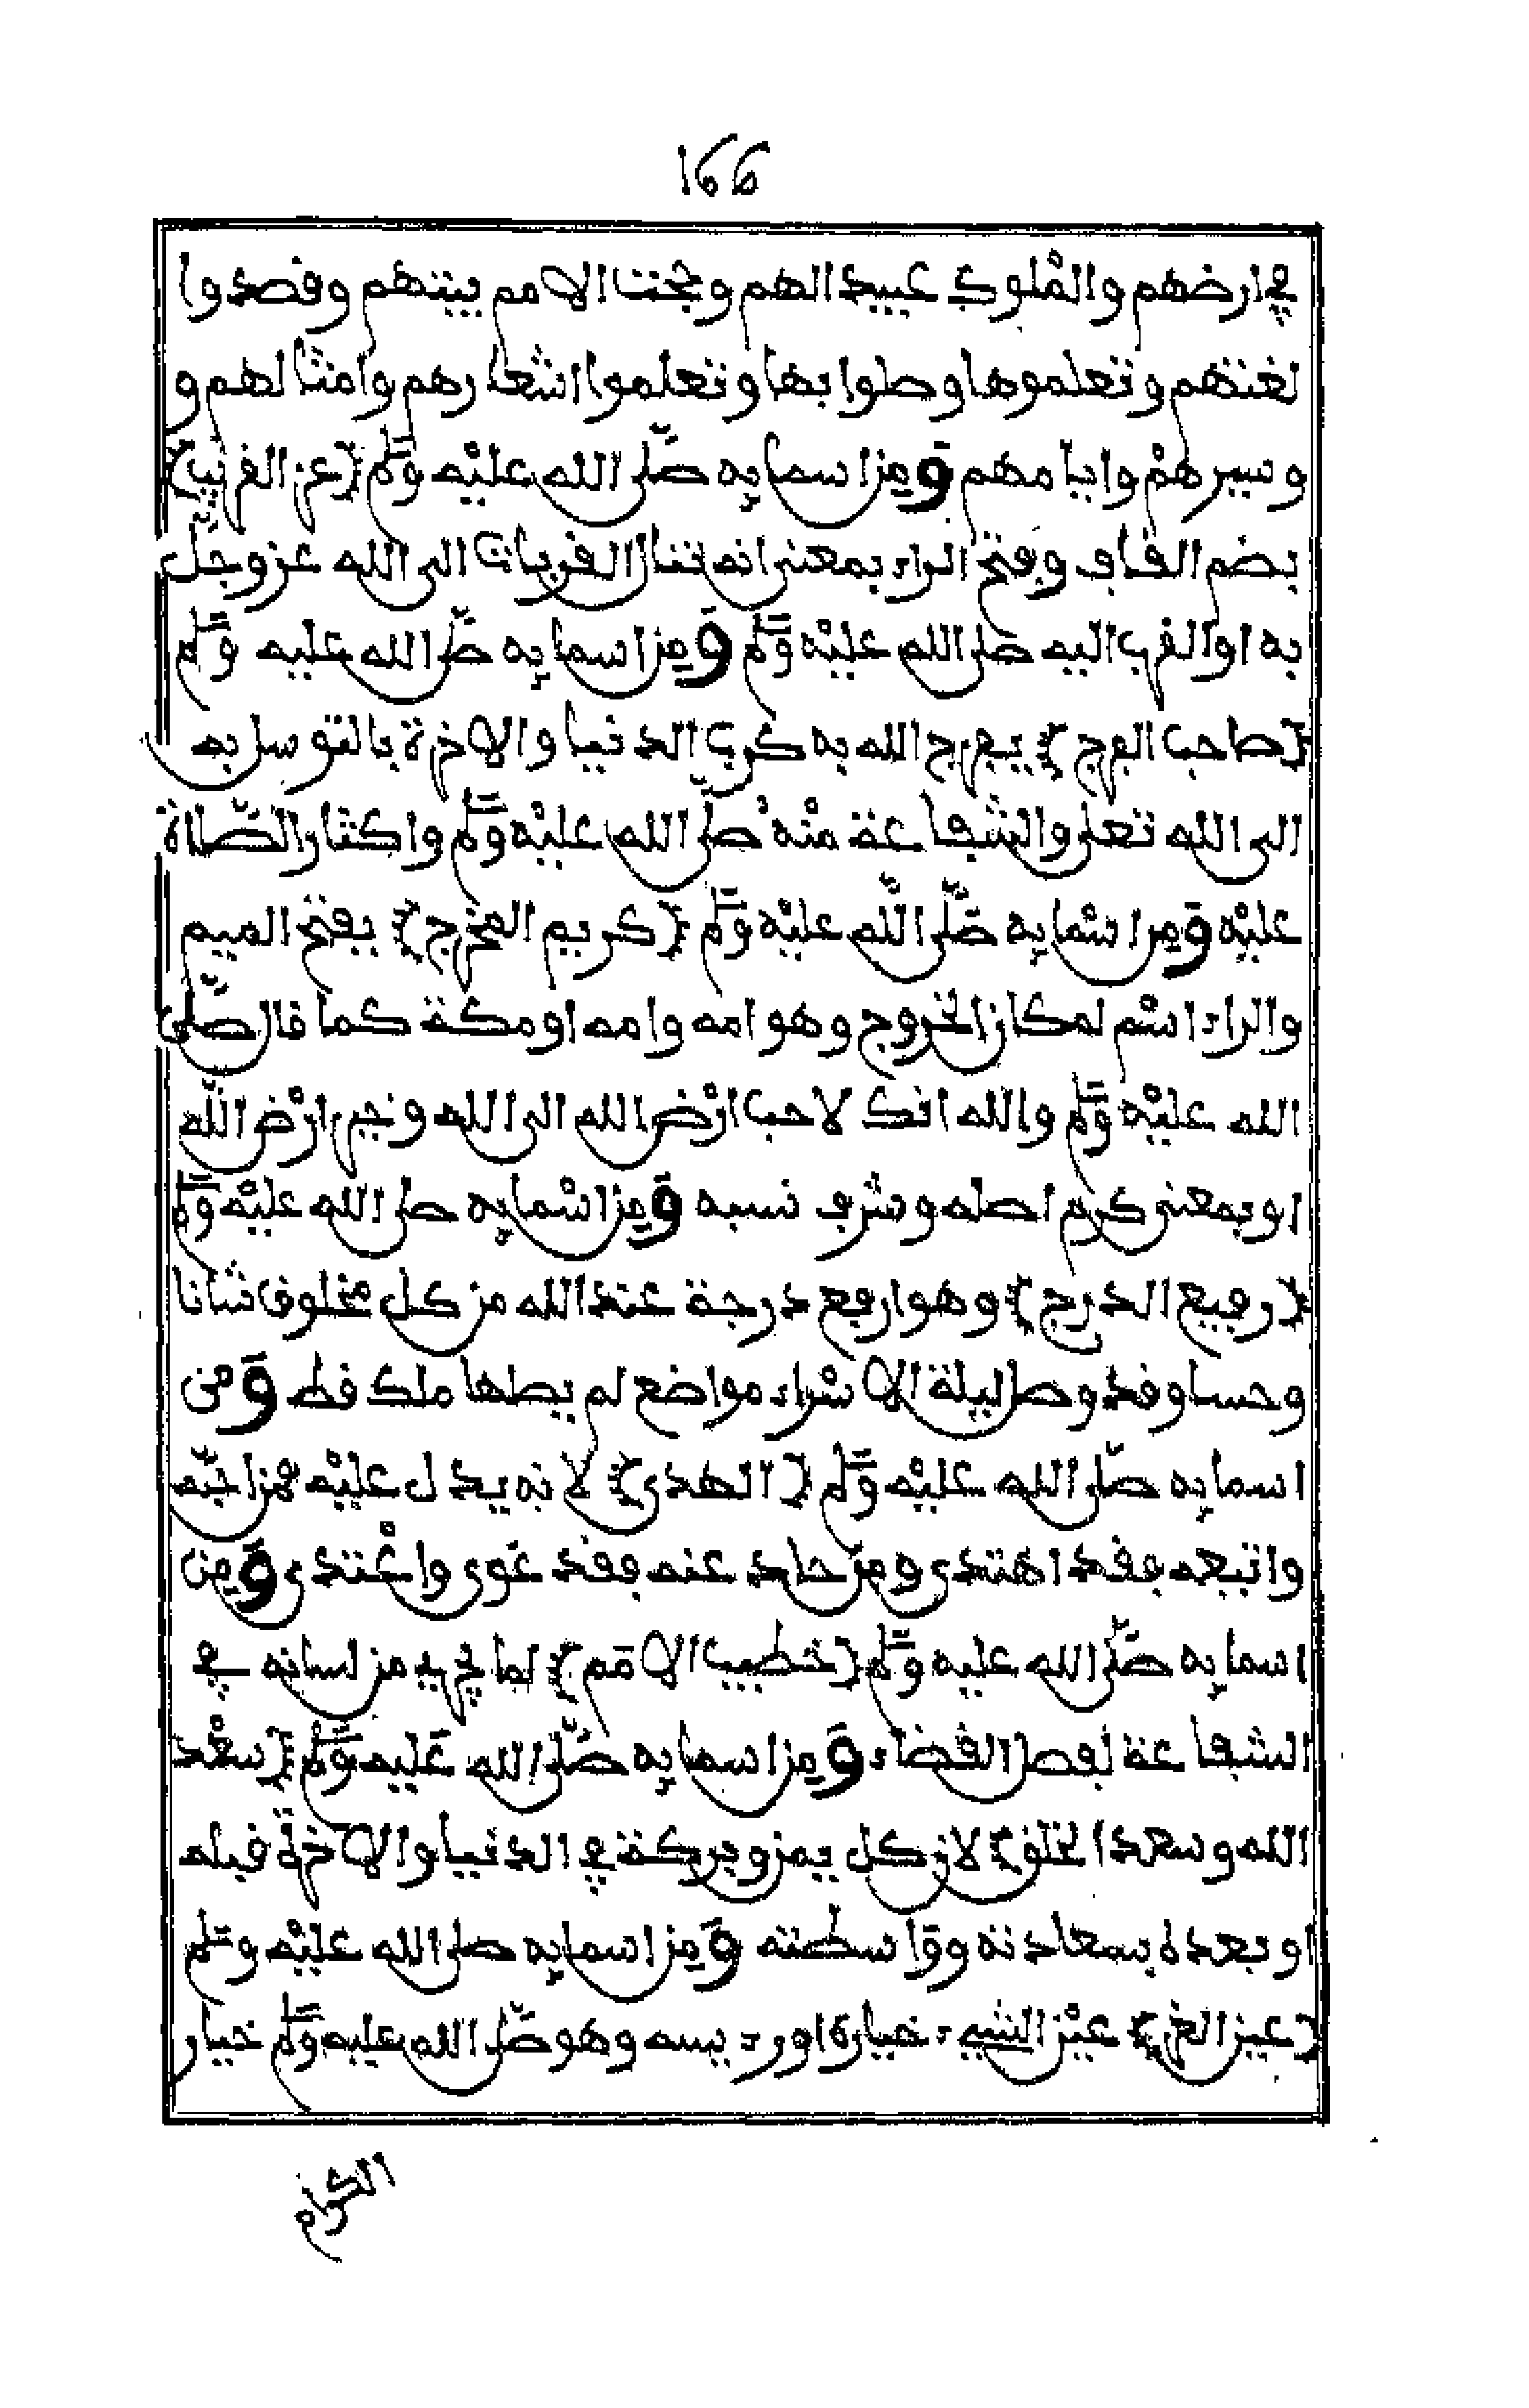 166
في ارضهم والملوك عبيد الهم وبحجت الامم بيتهم وقصدوا
لغتهم وتعلموها وصلوا بها وتعلموا اشعارهم وامثالهم و
وسيرهم وايامهم ومن اسمايه صلى الله عليه وسلم (عز القرب)
بضم القاف وفتح الراء بمعنى انه تنال القربات الى الله عز وجل
به او القرب اليه صلى الله عليه وسلم ومن اسمايه صلى الله عليه وسلم
(صاحب الفرج) يفرج الله به كرب الدنيا والاخرة بالتوسل به
الى الله تعلى والشفاعة منه صلى الله عليه وسلم واكثار الصلاة
عليه ومن اسمايه صلى الله عليه وسلم (كريم المخرج) بفتح الميم
والراء اسم لمكان الخروج وهو امه وامه او مكة كما قال صلى
الله عليه وسلم والله انك لاحب ارض الله الى الله وخير ارض الله
او بمعنى كرم اصله وشرف نسبه ومن اسمايه صلى الله عليه وسلم
(رفيع الدرج) وهو ارفع درجة عند الله من كل مخلوق شانا
وحسا وقد وصل ليلة الاسراء مواضع لم يطها ملك قط ومن
اسمايه صلى الله عليه وسلم (الهدى) لانه يدل عليه فمن احبه
واتبعه فقد اهتدى ومن حاد عنه فقد غوى واعتدى ومن
اسمايه صلى الله عليه وسلم (خطيب الامم) لما يجري من لسانه في
الشفاعة لفصل القضاء ومن اسمايه صلى الله عليه وسلم (سعد
الله وسعد الخلق) لان كل يمن وبركة في الدنيا والاخرة قبله
او بعده بسعادته وواسطته ومن اسمايه صلى الله عليه وسلم
(عين الغر) عين الشيء خياره او رءيسه وهو صلى الله عليه وسلم خيار
الكرام